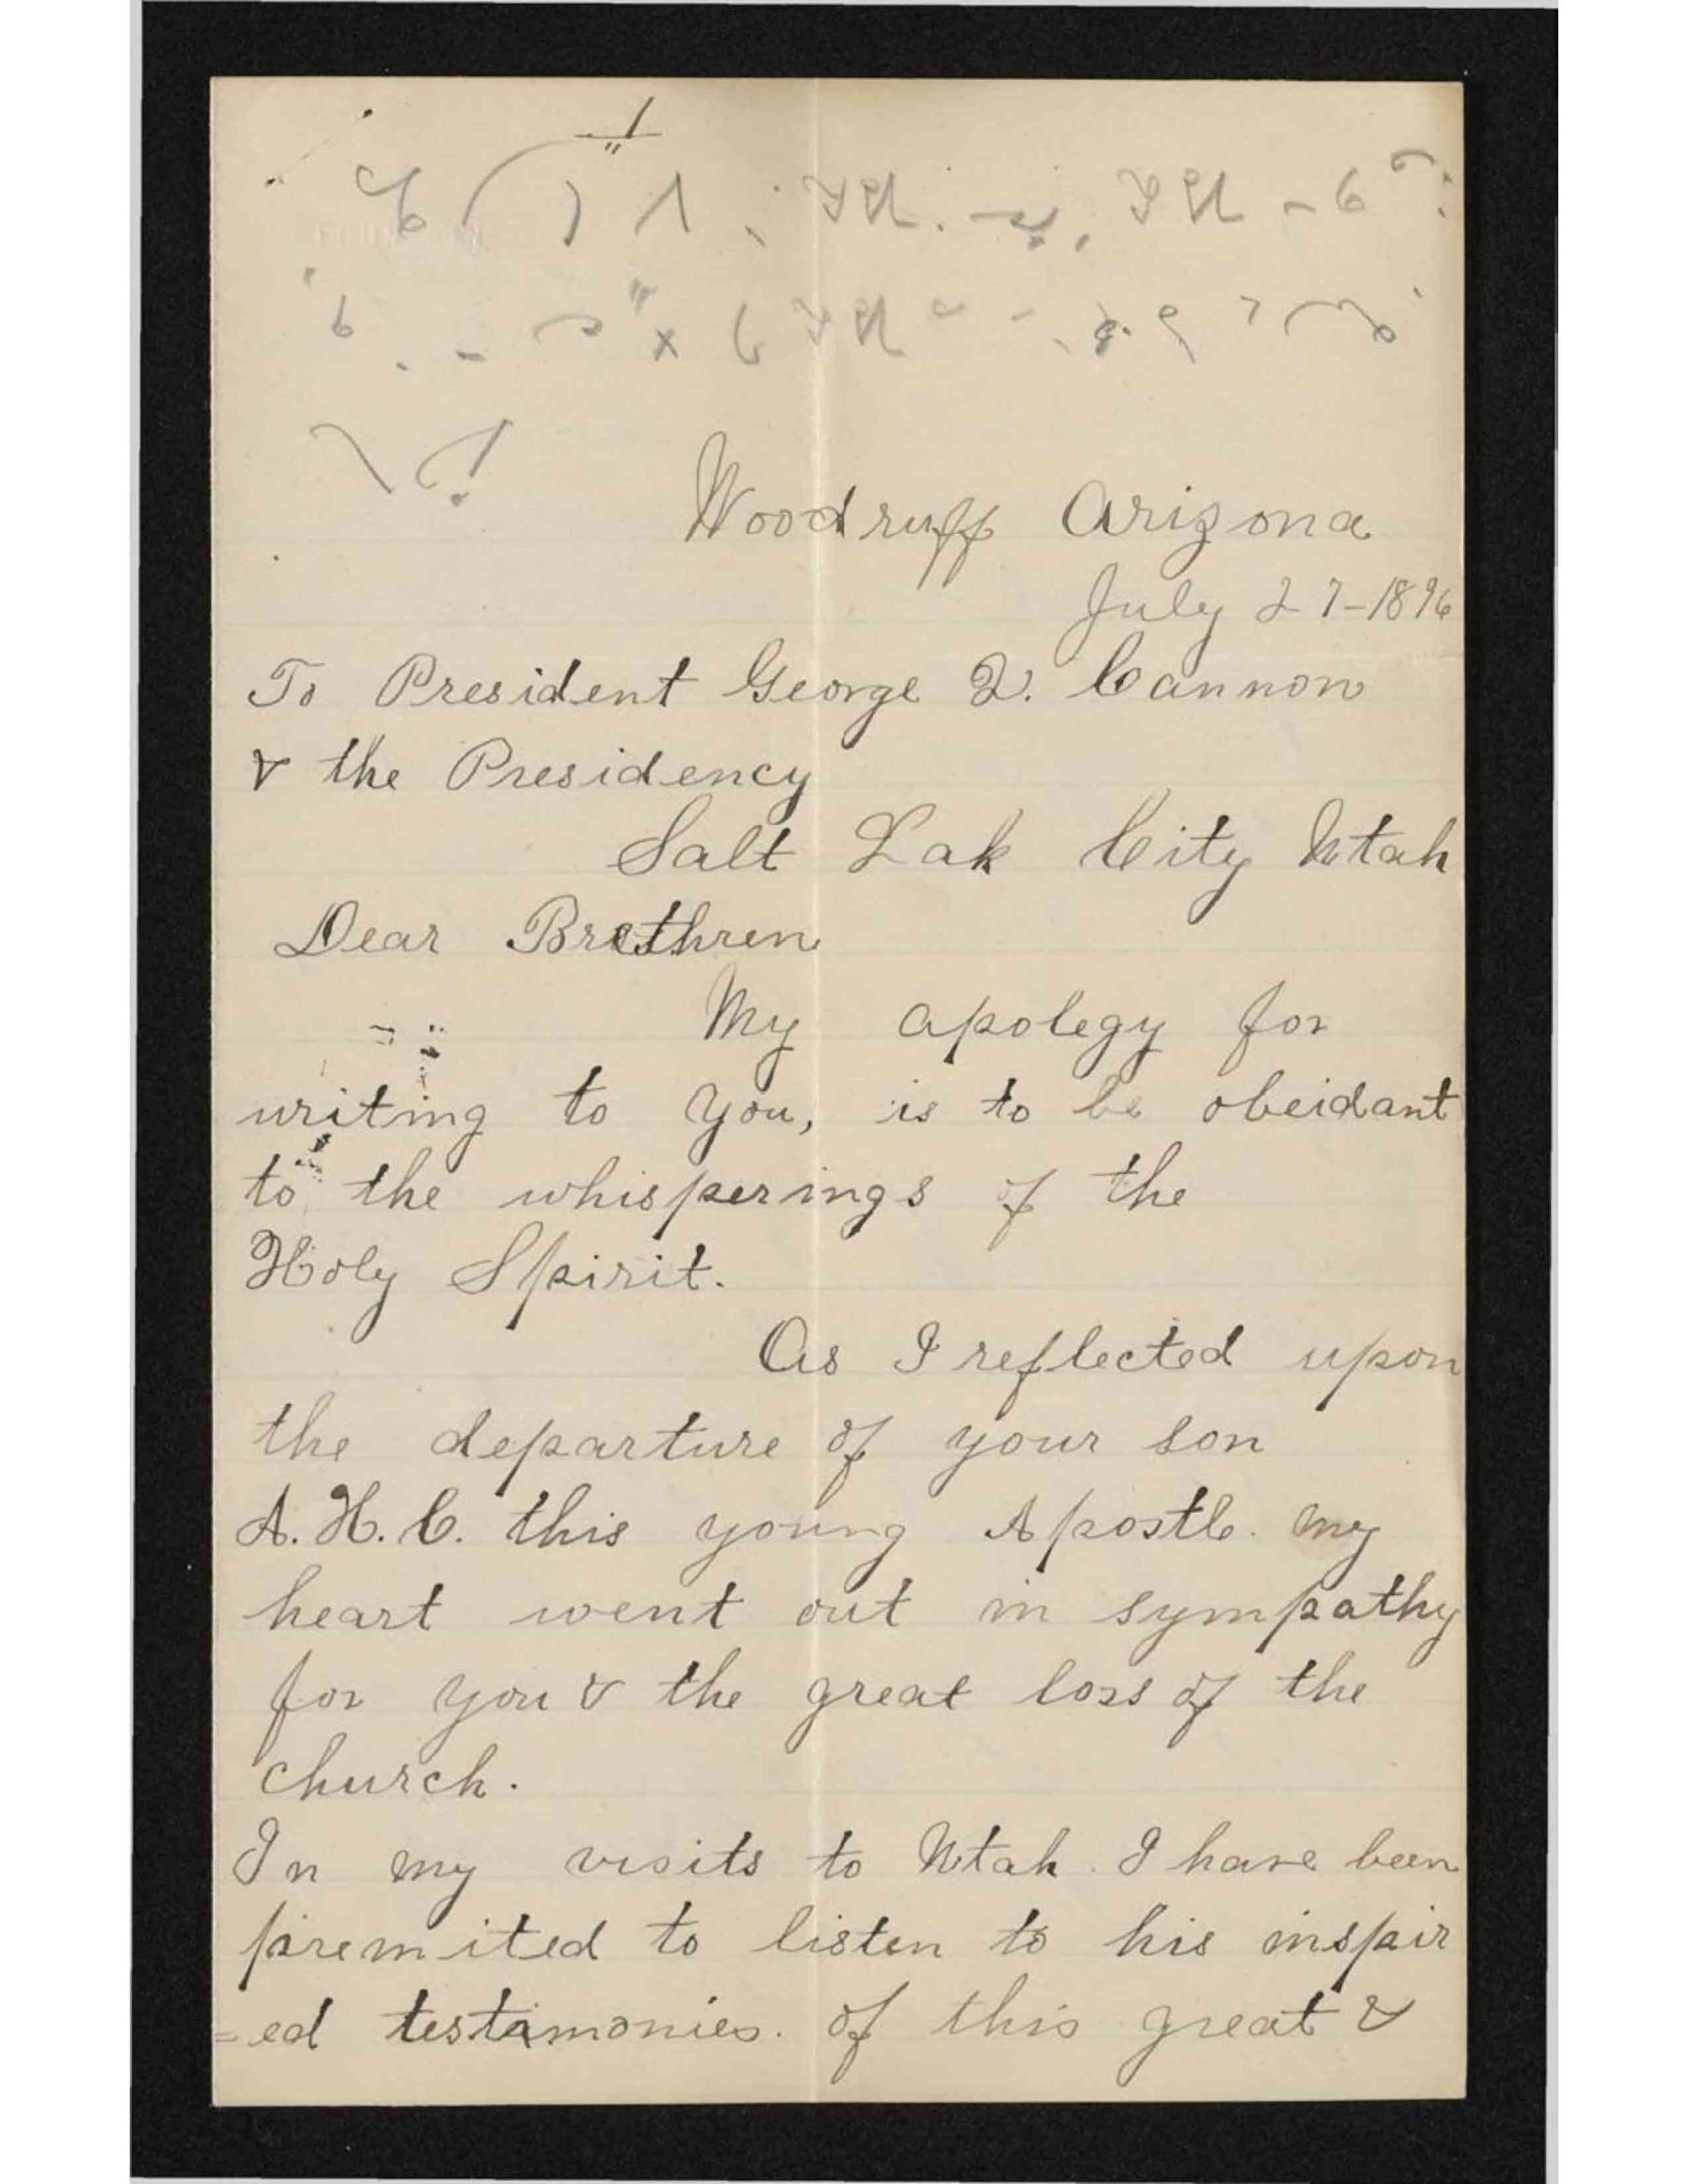 Woodruff Arizona
July 27-1896
To President George Q. Cannon
& the Presidency
Salt Lak City Utah
Dear Brethren
My apolegy for
writing to you, is to be obeidant
to the whisperings of the
Holy Spirit.
As I reflected upon
the departure of your son
A. H. C. this young Apostle. my
heart went out in sympathy
for you & the great loss of the
church.
In my visits to Utah I have been
premited to listen to his inspir
=ed testimonies. of this great &